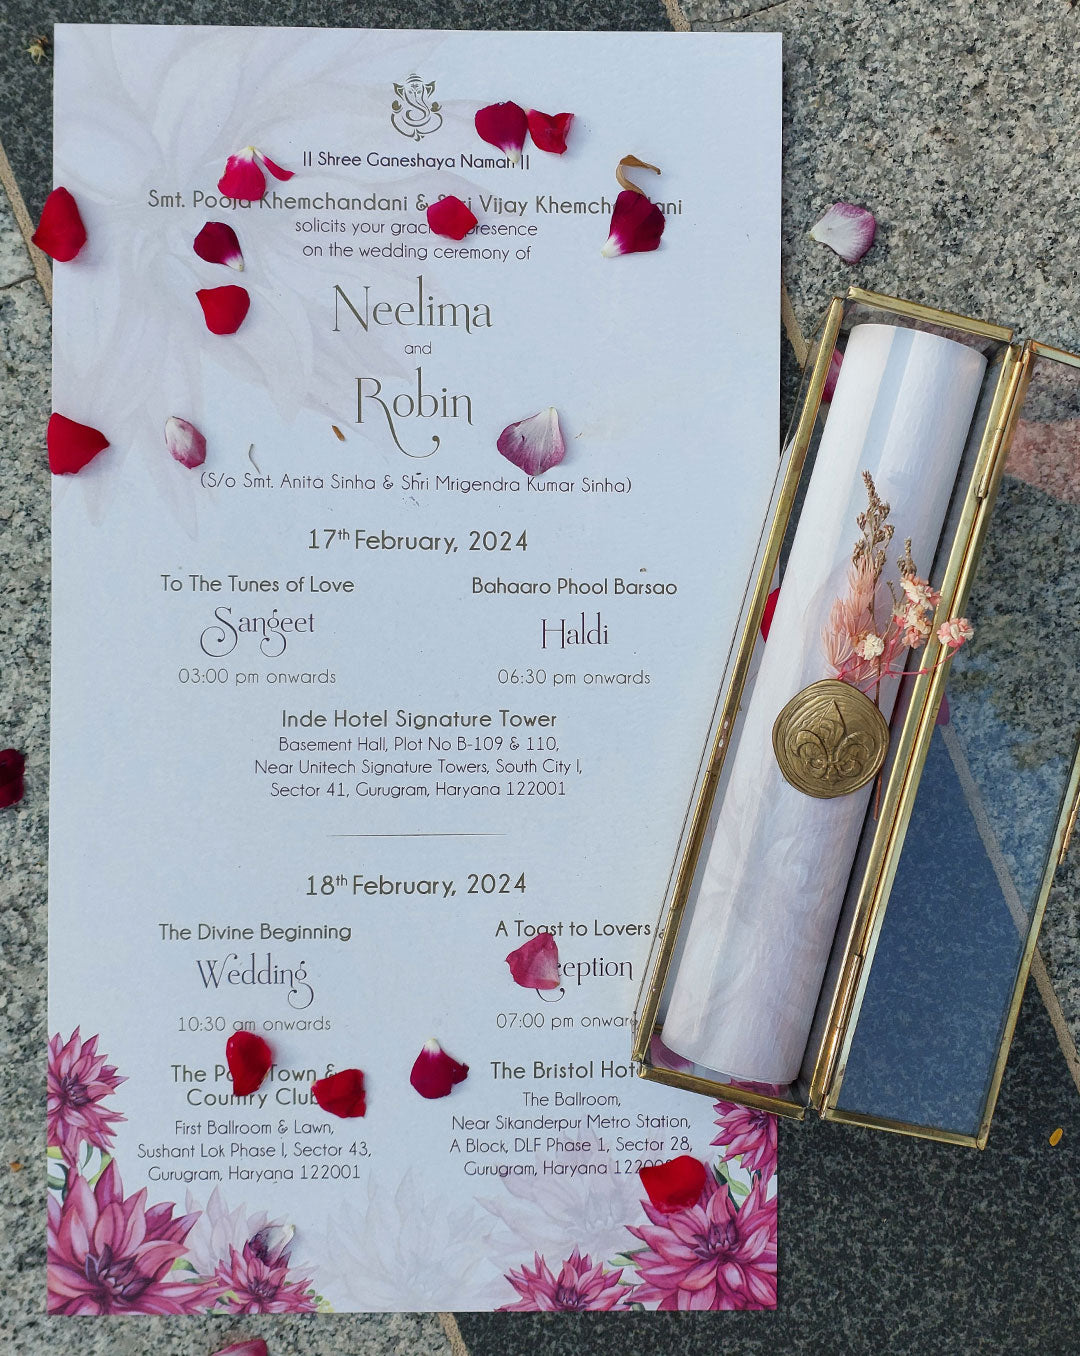 || Shree Ganeshaya Namah ||
Smt. Pooja Khemchandani & Shri Vijay Khemchandani
solicits your gracious presence
on the wedding ceremony of
Neelima
and
Robin
(S/o Smt. Anita Sinha & Shri Mrigendra Kumar Sinha)
17th February, 2024
To The Tunes of Love
Sangeet
03:00 pm onwards
Bahaaro Phool Barsao
Haldi
06:30 pm onwards
Inde Hotel Signature Tower
Basement Hall, Plot No B-109 & 110,
Near Unitech Signature Towers, South City I,
Sector 41, Gurugram, Haryana 122001
18th February, 2024
The Divine Beginning
Wedding
10:30 am onwards
The Town &
Country Club
First Ballroom & Lawn,
Sushant Lok Phase I, Sector 43,
Gurugram, Haryana 122001
A Toast to Lovers
Reception
07:00 pm onwards
The Bristol Hotel
The Ballroom,
Near Sikanderpur Metro Station,
A Block, DLF Phase 1, Sector 28,
Gurugram, Haryana 122002